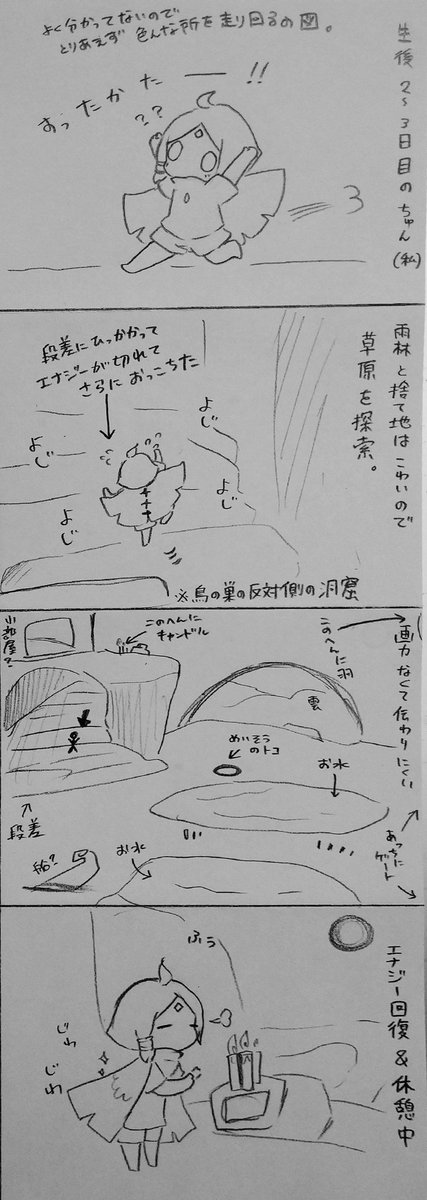 生後2~3日目のちゅん(私)
よく分かってないので
とりあえず 色んな所を走り回るの図。
おったかたー!!
??
雨林と捨て地はこわいので
草原を探索。
段差にひっかかって
エナジーが切れて
さらにおっこちた
よじ
よじ
よじ
よじ
※鳥の巣の反対側の洞窟
画力なくて伝わりにくい
このへんに羽
このへんに
キャンドル
小部屋?
雲
めいそう
のトコ
お水
段差
船?
お水
あっちに
ゲート
エナジー回復&休憩中
ふぅ
じわ
じわ